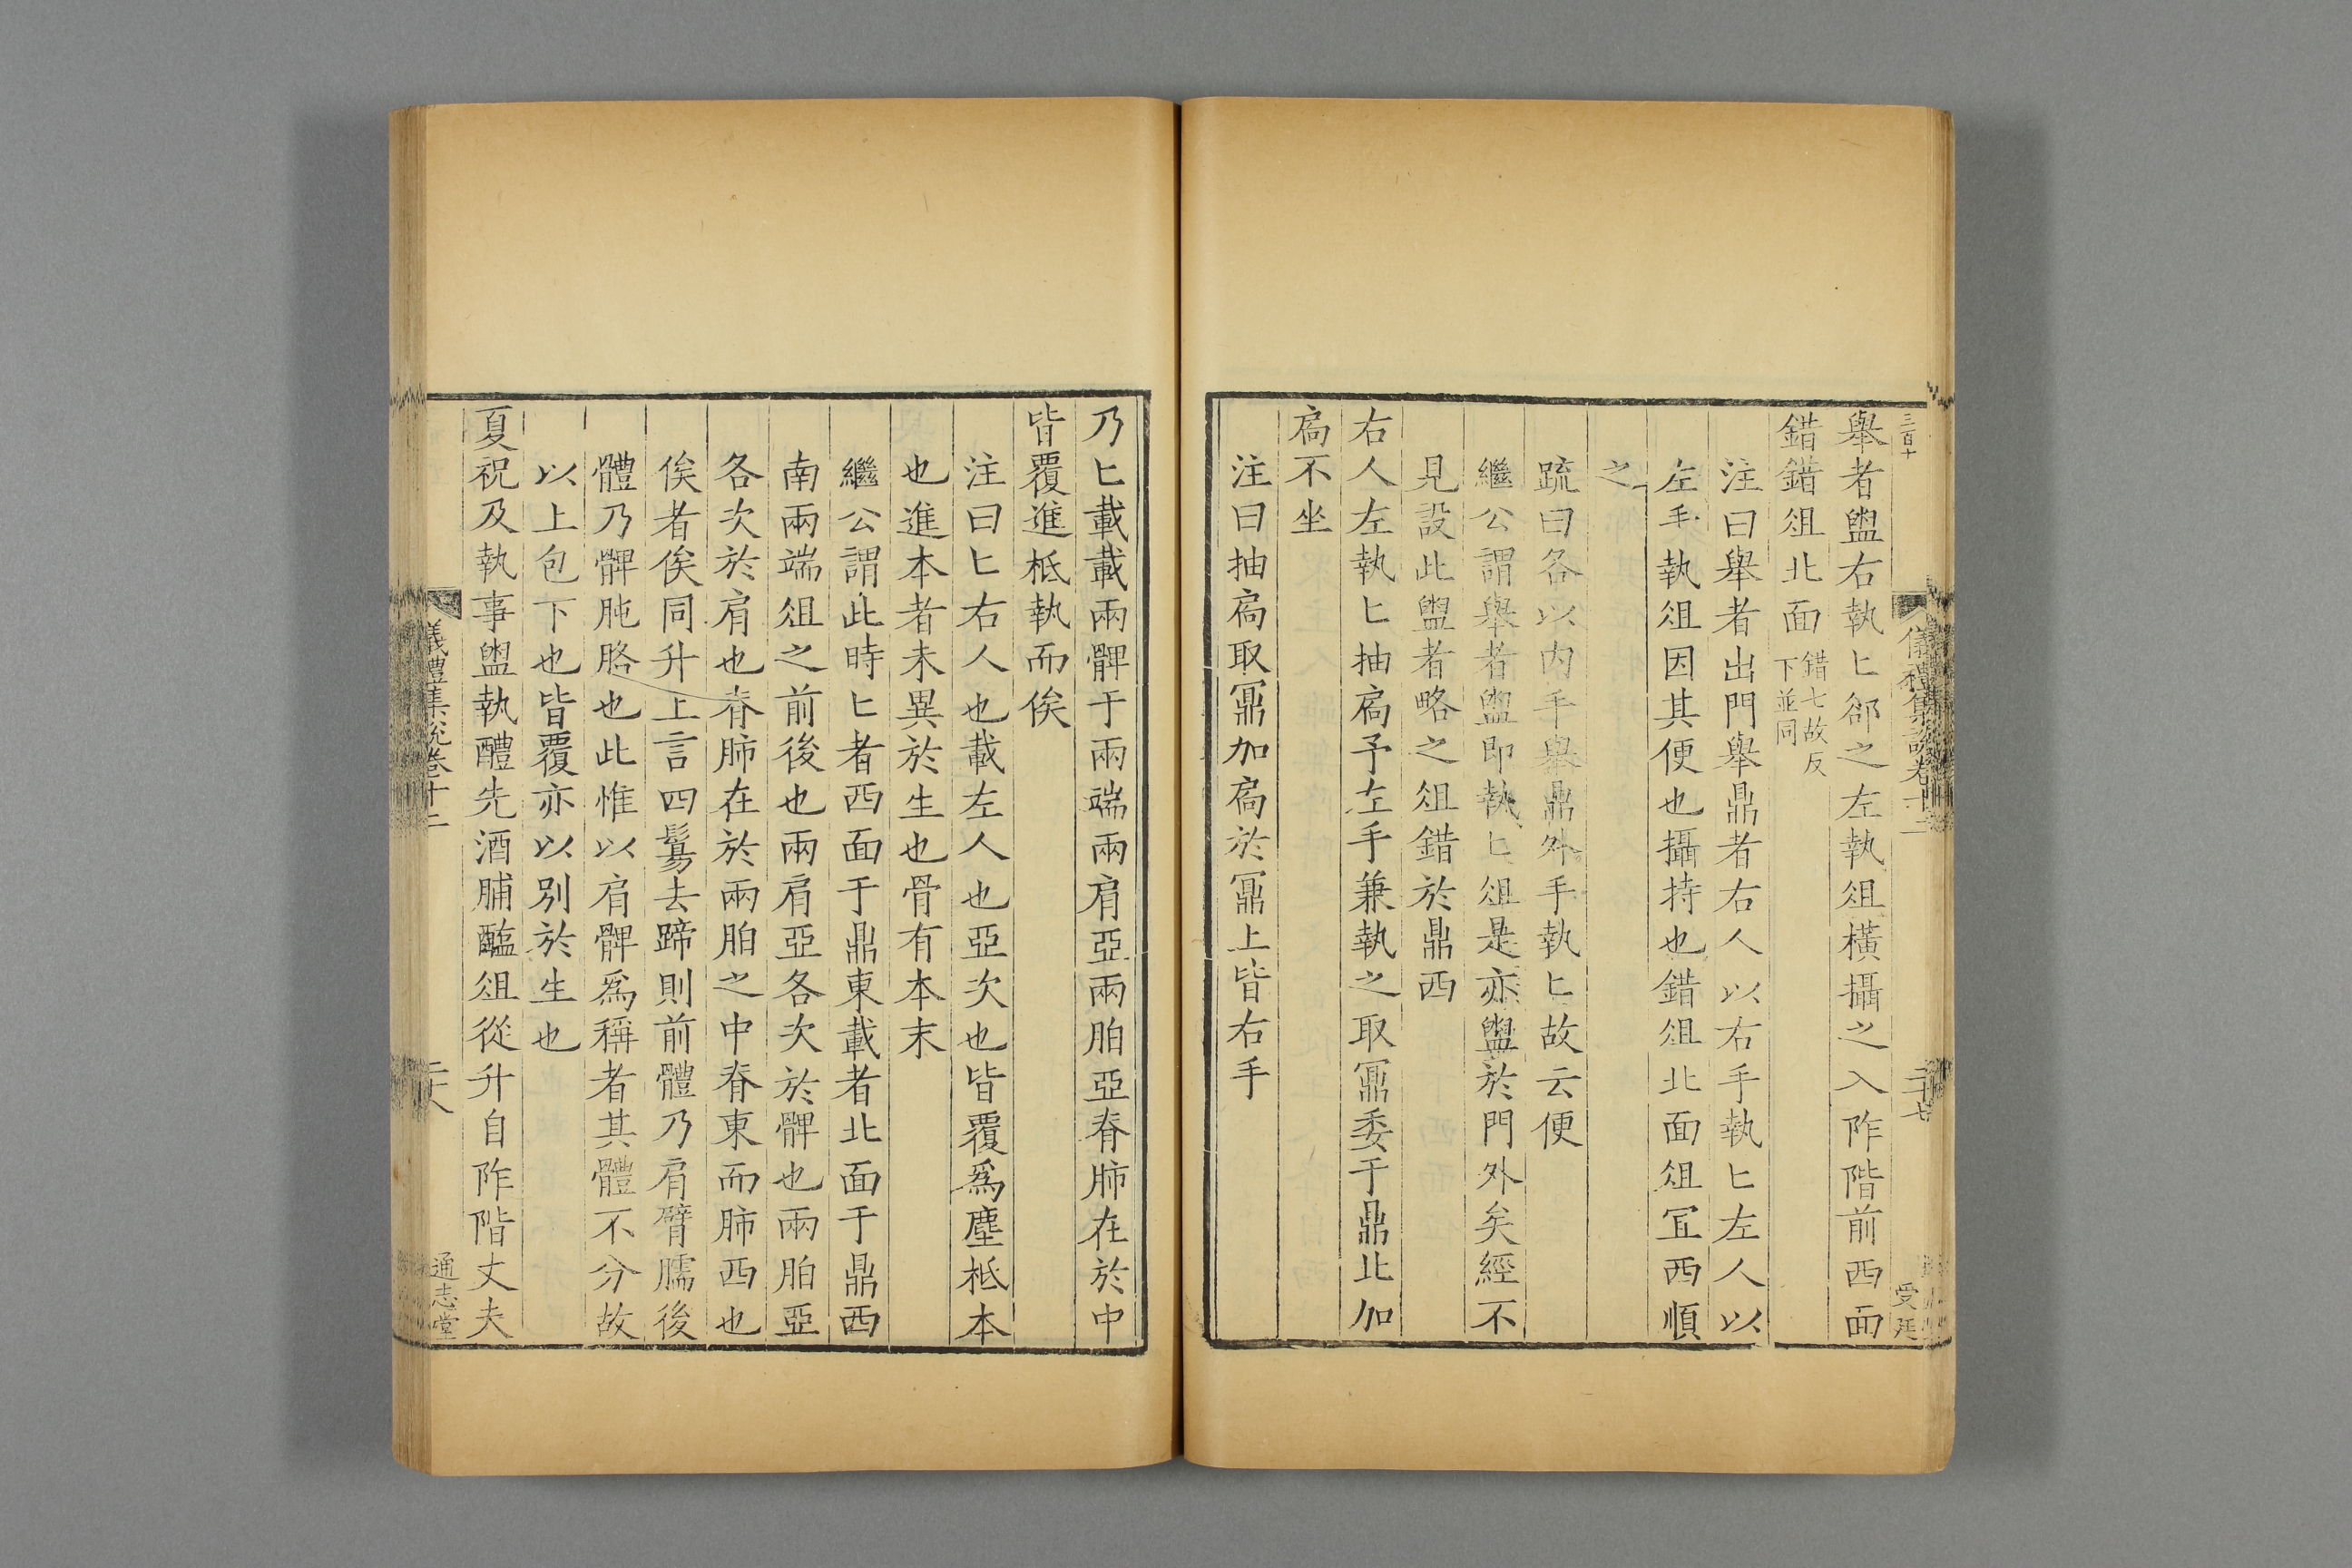 三百十
儀禮集說卷十二
二十七
受廷
舉者盥右執匕郤之左執俎橫攝之入阼階前西面
錯錯俎北面錯七故反下並同
注曰舉者出門舉鼎者右人以右手執匕左人以
左手執俎因其便也攝持也錯俎北面俎宜西順
之
疏曰各以內手舉鼎外手執匕故云便
繼公謂舉者盥即執匕俎是亦盥於門外矣經不
見設此盥者略之俎錯於鼎西
右人左執匕抽扃予左手兼執之取鼏委于鼎北加
扃不坐
注曰抽扃取鼏加扃於鼏上皆右手
乃匕載載兩髀于兩端兩肩亞兩胉亞脊肺在於中
皆覆進柢執而俟
注曰匕右人也載左人也亞次也皆覆為塵柢本
也進本者未異於生也骨有本末
繼公謂此時匕者西面于鼎東載者北面于鼎西
南兩端俎之前後也兩肩亞各次於髀也兩胉亞
各次於肩也脊肺在於兩胉之中脊東而肺西也
俟者俟同升上言四鬄去蹄則前體乃肩臂臑後
體乃髀肫胳也此惟以肩髀爲稱者其體不分故
以上包下也皆覆亦以別於生也
夏祝及執事盥執醴先酒脯醢俎從升自阼階丈夫
儀禮集說卷十二
二十八
通志堂